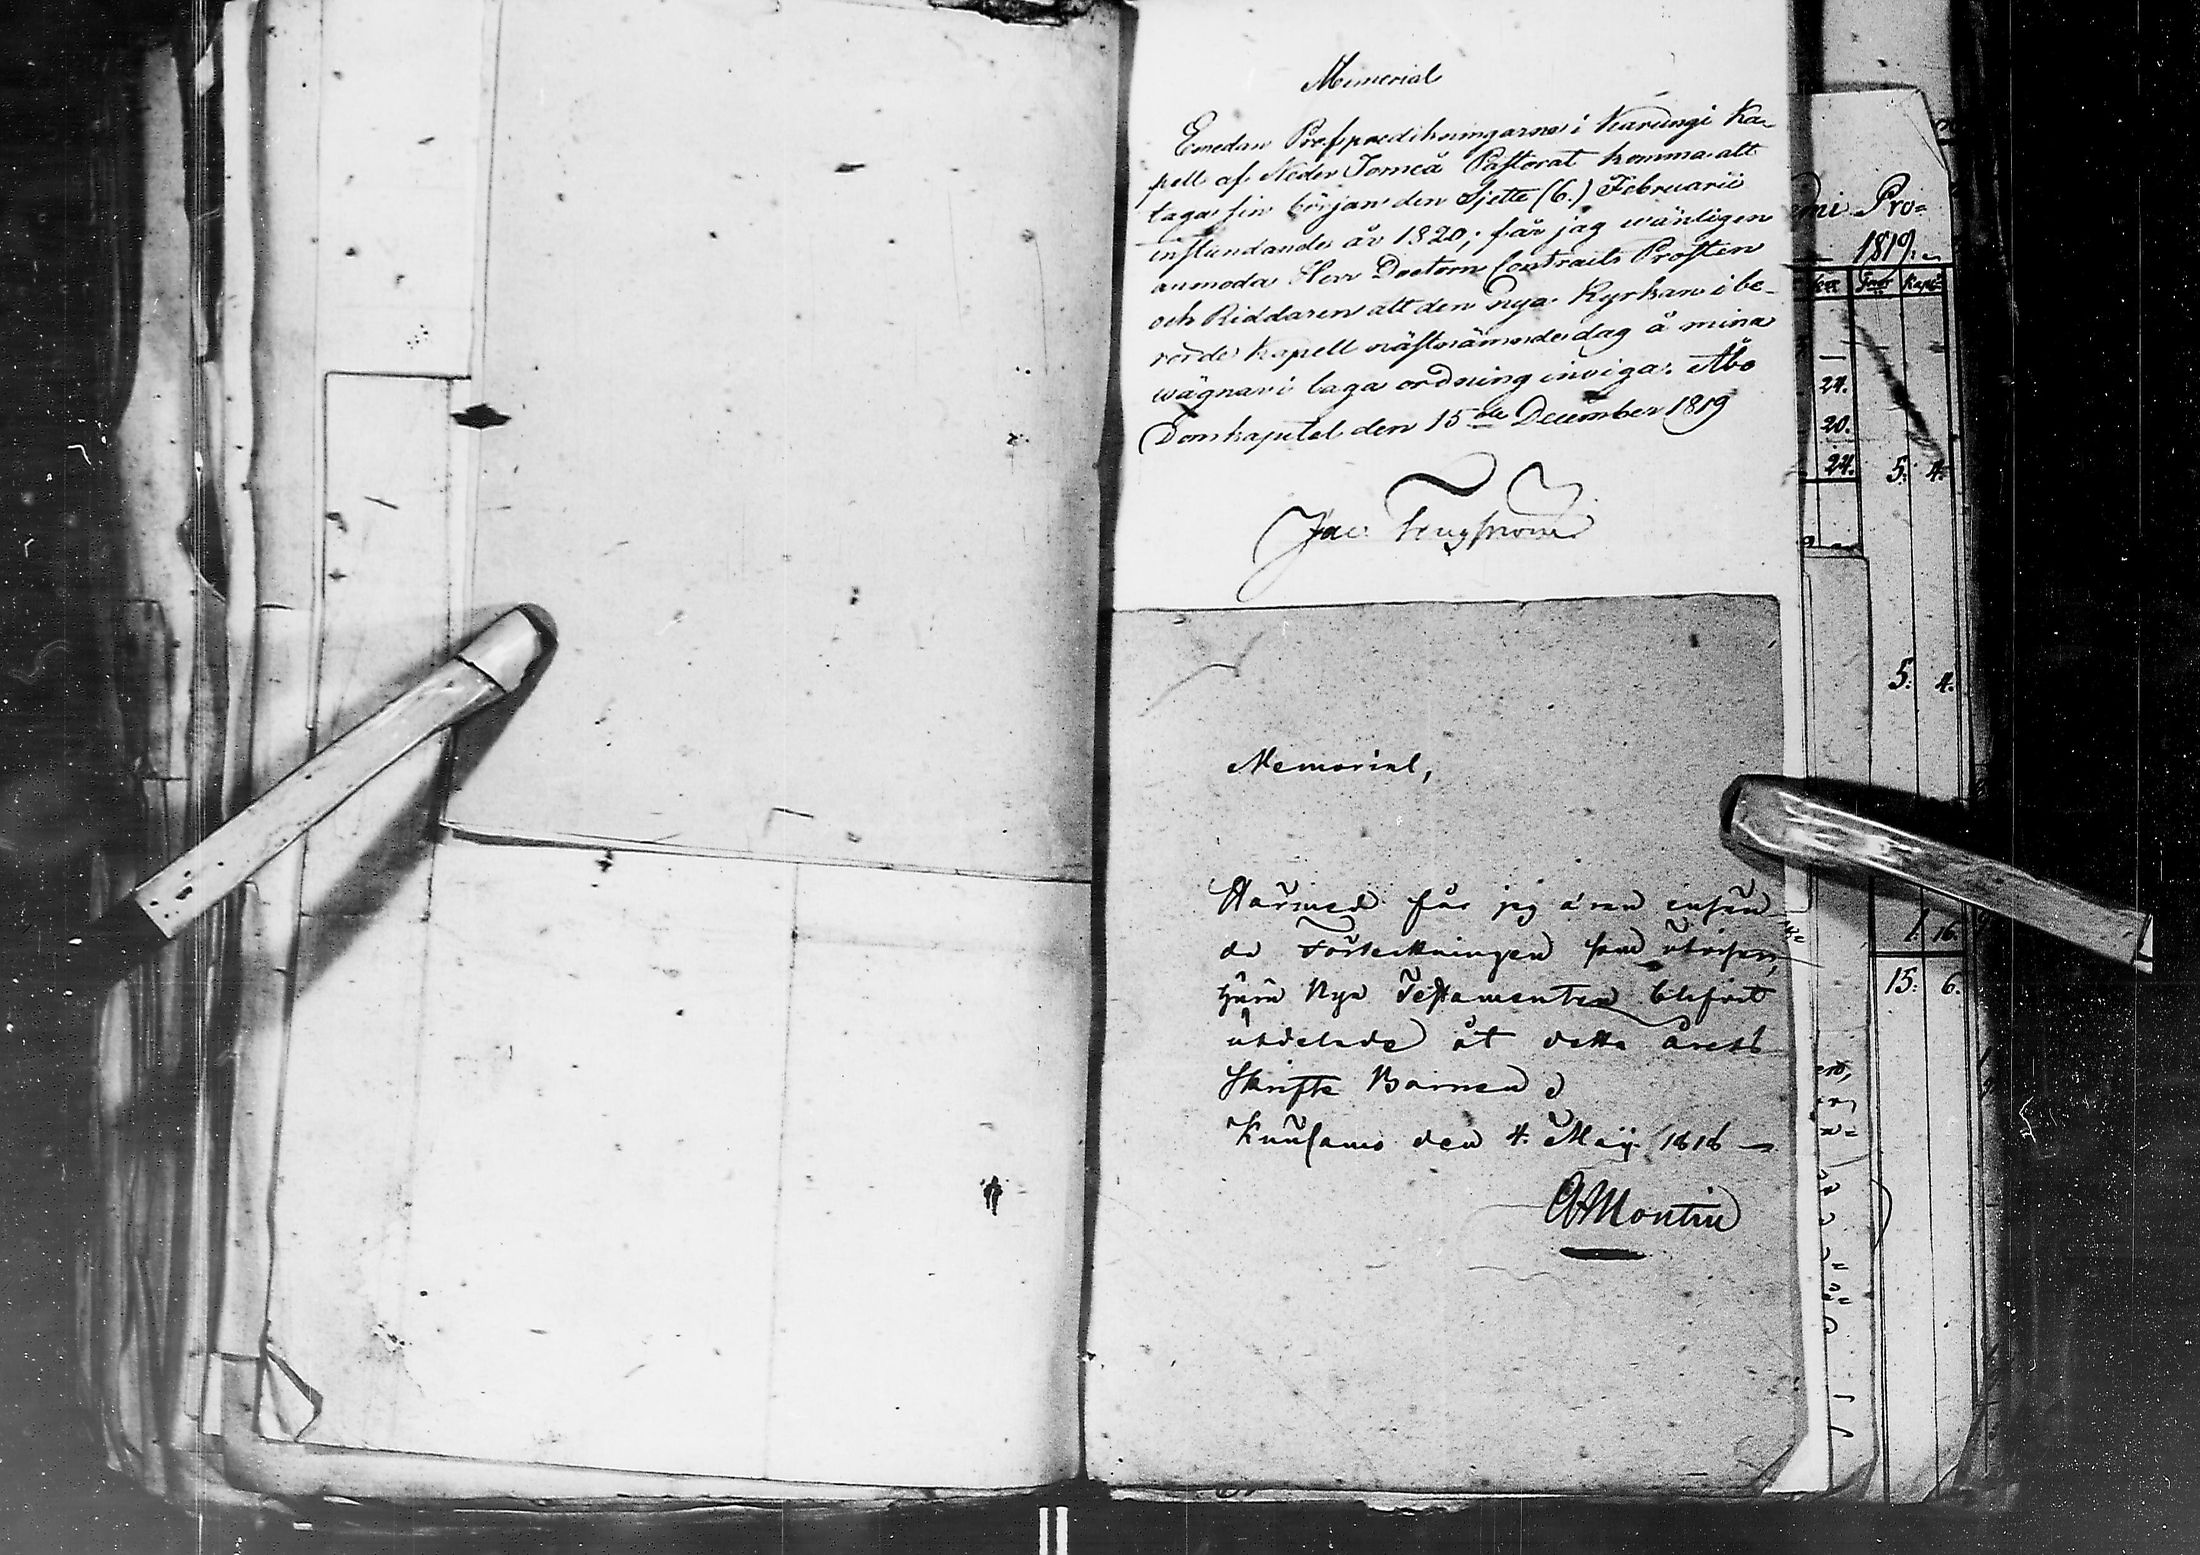 Memorial
Emedan Profpredikningarna i Karungi Ka-
pell af Neder Torneå Pastorat komma att
taga sin början den Sjette (6.) Februarii
instundande år 1820; får jag wänligen
anmoda Herr Doctorn Contracts Prosten
och Riddaren att den nya Kyrkan i be-
rörde Kapell nästnämnde dag å mina
wägnar i laga ordning inviga. Åbo
Domkapitel den 15de December 1819
Jac. Tengström
Memorial,
Härmed får jag äran insän
da Förteckningen som utvisar,
huru Nya Testamenten blifvit
utdelade åt detta årets
Skrifte Barnen
Kuusamo den 4. Maij 1818
A Montin
Pro-
1819.
24.
20.
24. 5: 4.
5: 4.
1. 16.
15: 6.